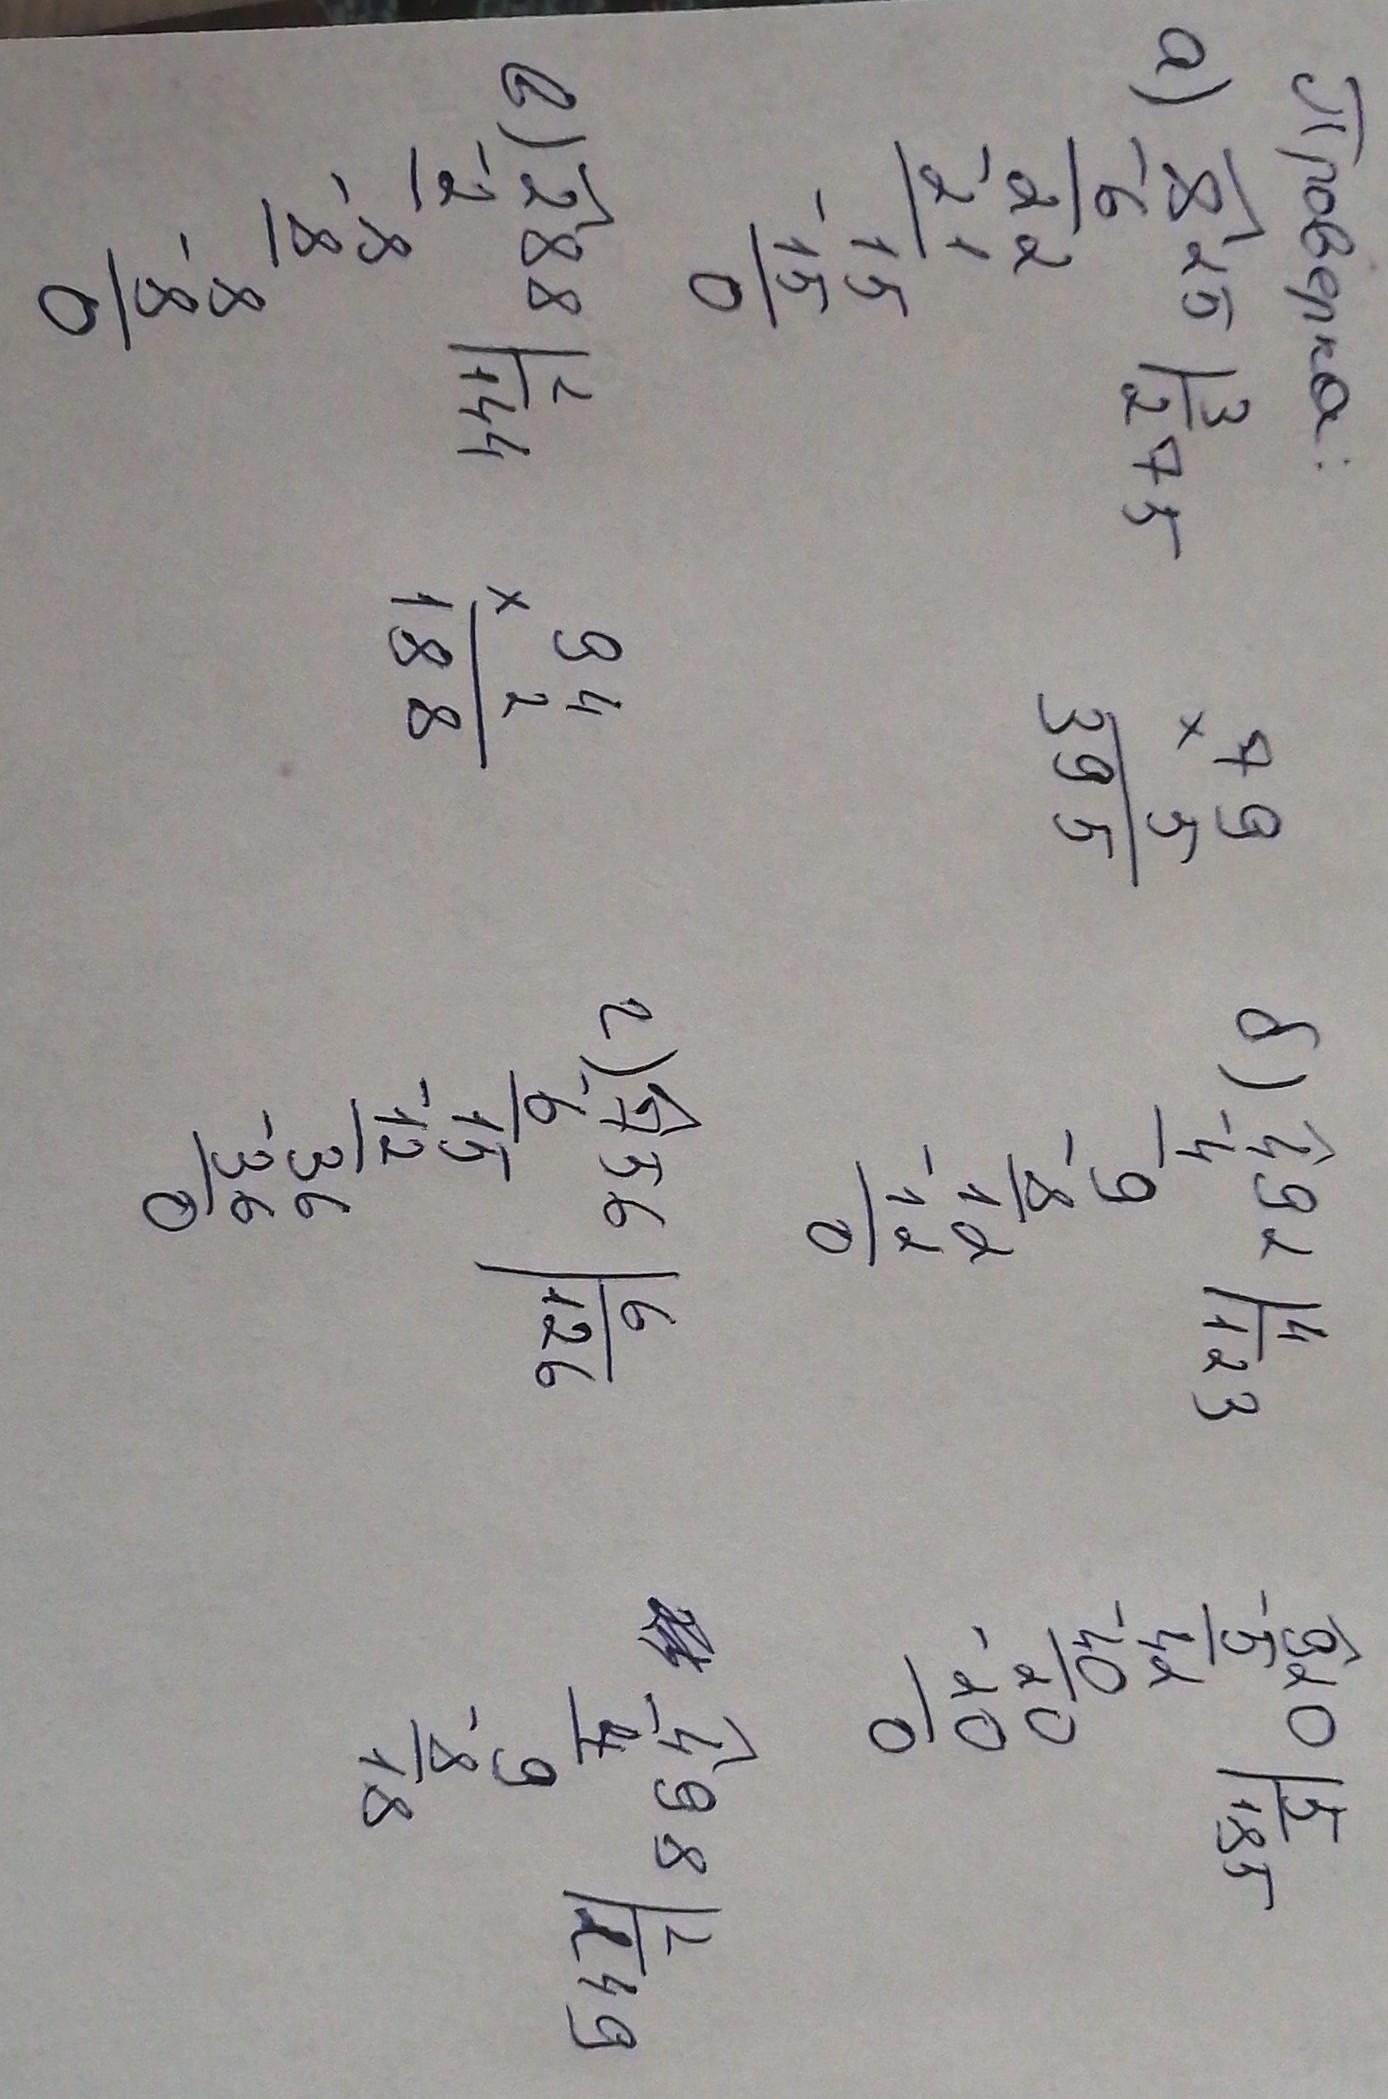 Проверка:
а) 825 | 3
-6 275
22
-21
15
-15
0
79
× 5
395
б) 492 | 4
-4 123
9
-8
12
-12
0
920 | 5
-5 185
42
-40
20
-20
0
в) 288 | 2
-2 144
8
-8
8
-8
0
94
× 2
188
г) 756 | 6
-6 126
15
-12
36
-36
0
498 | 2
-4 249
9
-8
18